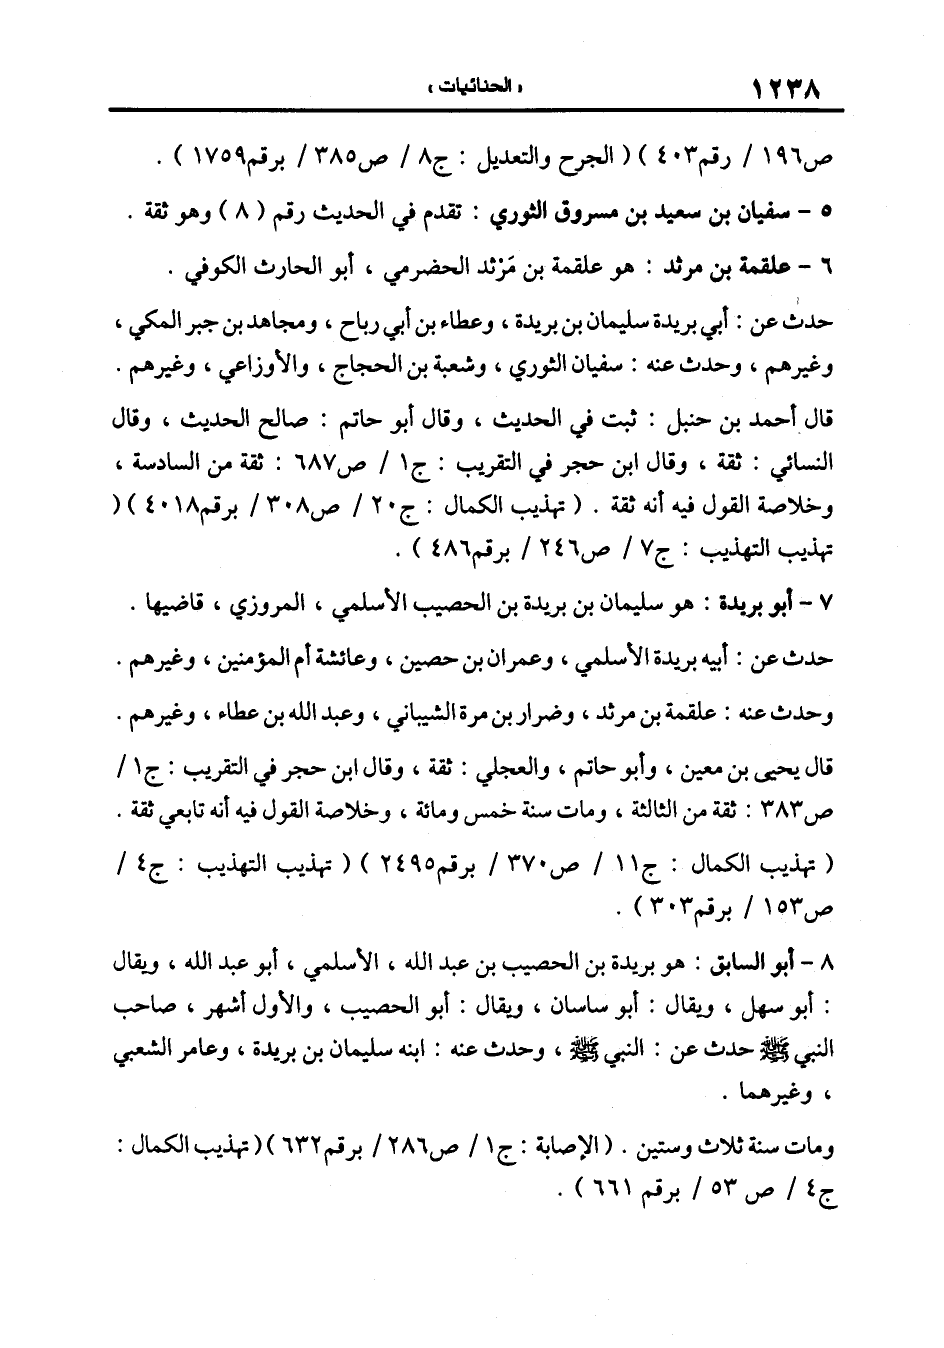 ١٢٣٨ « الحنائيات »
ص١٩٦ / رقم٤٠٣ )( الجرح والتعديل : ج٨ / ص٣٨٥ / برقم١٧٥٩ ) .
٥ – سفيان بن سعيد بن مسروق الثوري : تقدم في الحديث رقم ( ٨ ) وهو ثقة .
٦ – علقمة بن مرثد : هو علقمة بن مَرْثد الحضرمي ، أبو الحارث الكوفي .
حدث عن : أبي بريدة سليمان بن بريدة ، وعطاء بن أبي رباح ، ومجاهد بن جبر المكي ،
وغيرهم ، وحدث عنه : سفيان الثوري ، وشعبة بن الحجاج ، والأوزاعي ، وغيرهم .
قال أحمد بن حنبل : ثبت في الحديث ، وقال أبو حاتم : صالح الحديث ، وقال
النسائي : ثقة ، وقال ابن حجر في التقريب : ج١ / ص٦٨٧ : ثقة من السادسة ،
وخلاصة القول فيه أنه ثقة . ( تهذيب الكمال : ج٢٠ / ص٣٠٨ / برقم٤٠١٨ )(
تهذيب التهذيب : ج٧ / ص٢٤٦ / برقم٤٨٦ ) .
٧ – أبو بريدة : هو سليمان بن بريدة بن الحصيب الأسلمي ، المروزي ، قاضيها .
حدث عن : أبيه بريدة الأسلمي ، وعمران بن حصين ، وعائشة أم المؤمنين ، وغيرهم .
وحدث عنه : علقمة بن مرثد ، وضرار بن مرة الشيباني ، وعبد الله بن عطاء ، وغيرهم .
قال يحيى بن معين ، وأبو حاتم ، والعجلي : ثقة ، وقال ابن حجر في التقريب : ج١ /
ص٣٨٣ : ثقة من الثالثة ، ومات سنة خمس ومائة ، وخلاصة القول فيه أنه تابعي ثقة .
( تهذيب الكمال : ج١١ / ص٣٧٠ / برقم٢٤٩٥ )( تهذيب التهذيب : ج٤ /
ص١٥٣ / برقم٣٠٣ ) .
٨ – أبو السابق : هو بريدة بن الحصيب بن عبد الله ، الأسلمي ، أبو عبد الله ، ويقال
: أبو سهل ، ويقال : أبو ساسان ، ويقال : أبو الحصيب ، والأول أشهر ، صاحب
النبي ﷺ حدث عن : النبي ﷺ ، وحدث عنه : ابنه سليمان بن بريدة ، وعامر الشعبي
، وغيرهما .
ومات سنة ثلاث وستين . ( الإصابة : ج١ / ص٢٨٦ / برقم٦٣٢ )( تهذيب الكمال :
ج٤ / ص ٥٣ / برقم ٦٦١ ) .